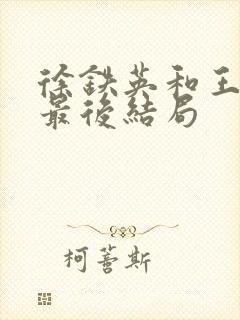 徐鉄英和王
最後結局
柯蓍斯